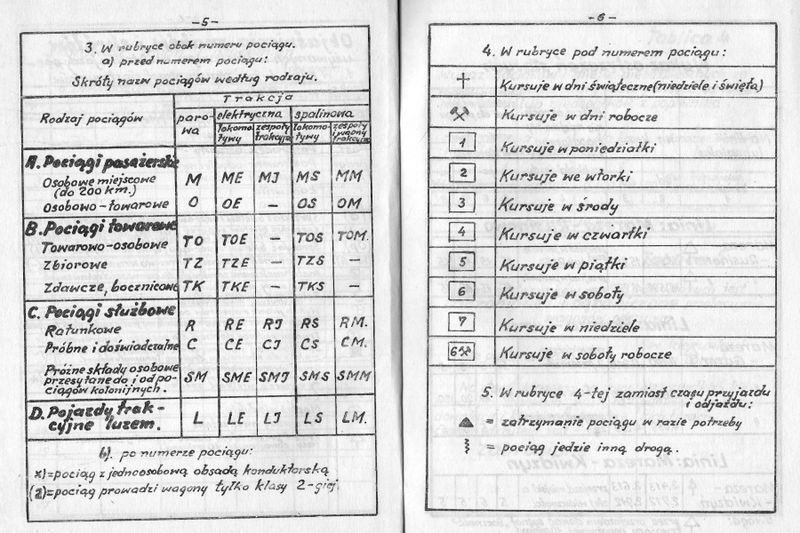 -5-
3. W rubryce obok numeru pociągu.
a) przed numerem pociągu:
Skróty nazw pociągów według rodzaju.
Rodzaj pociągów
Trakcja
paro-
wa
elektryczna
spalinowa
lokomo-
tywy
zespoły
trakcyjn.
lokomo-
tywy
zespoły
i wagony
trakcyjn.
A. Pociągi pasażerskie
Osobowe miejscowe
(do 200 km.)
M ME MJ MS MM
Osobowo-towarowe O OE – OS OM
B. Pociągi towarowe
Towarowo-osobowe TO TOE – TOS TOM.
Zbiorowe TZ TZE – TZS –
Zdawcze, bocznicowe TK TKE – TKS –
C. Pociągi służbowe
Ratunkowe R RE RJ RS RM.
Próbne i doświadczalne C CE CJ CS CM.
Próżne składy osobowe
przesyłane do i od po-
ciągów kolonijnych.
SM SME SMJ SMS SMM
D. Pojazdy trak-
cyjne luzem.
L LE LJ LS LM.
b). po numerze pociągu:
x)=pociąg z jednoosobową obsadą konduktorską
(2)=pociąg prowadzi wagony tylko klasy 2-giej.
-6-
4. W rubryce pod numerem pociągu:
† Kursuje w dni świąteczne(niedziele i święta)
⚒ Kursuje w dni robocze
1 Kursuje w poniedziałki
2 Kursuje we wtorki
3 Kursuje w środy
4 Kursuje w czwartki
5 Kursuje w piątki
6 Kursuje w soboty
7 Kursuje w niedziele
6⚒ Kursuje w soboty robocze
5. W rubryce 4-tej zamiast czasu przyjazdu
i odjazdu:
▲ = zatrzymanie pociągu w razie potrzeby
⌇ = pociąg jedzie inną drogą.